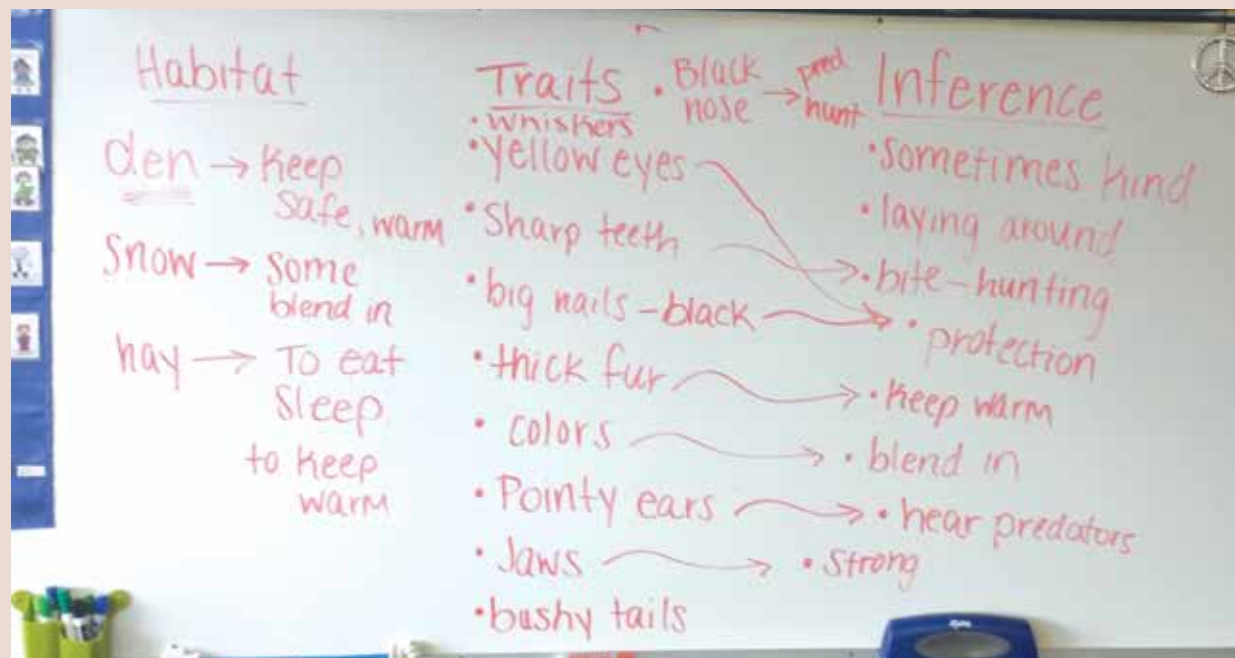 Habitat
den → Keep
safe, warm
snow → some
blend in
hay → To eat
Sleep
to keep
warm
Traits
• Black
nose → pred
hunt
• whiskers
• yellow eyes
• Sharp teeth
• big nails - black
• thick fur
• colors
• Pointy ears
• Jaws
• bushy tails
Inference
• sometimes kind
• laying around
• bite - hunting
• protection
• keep warm
• blend in
• hear predators
• Strong